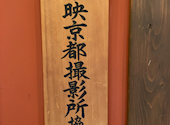 映京都撮影所